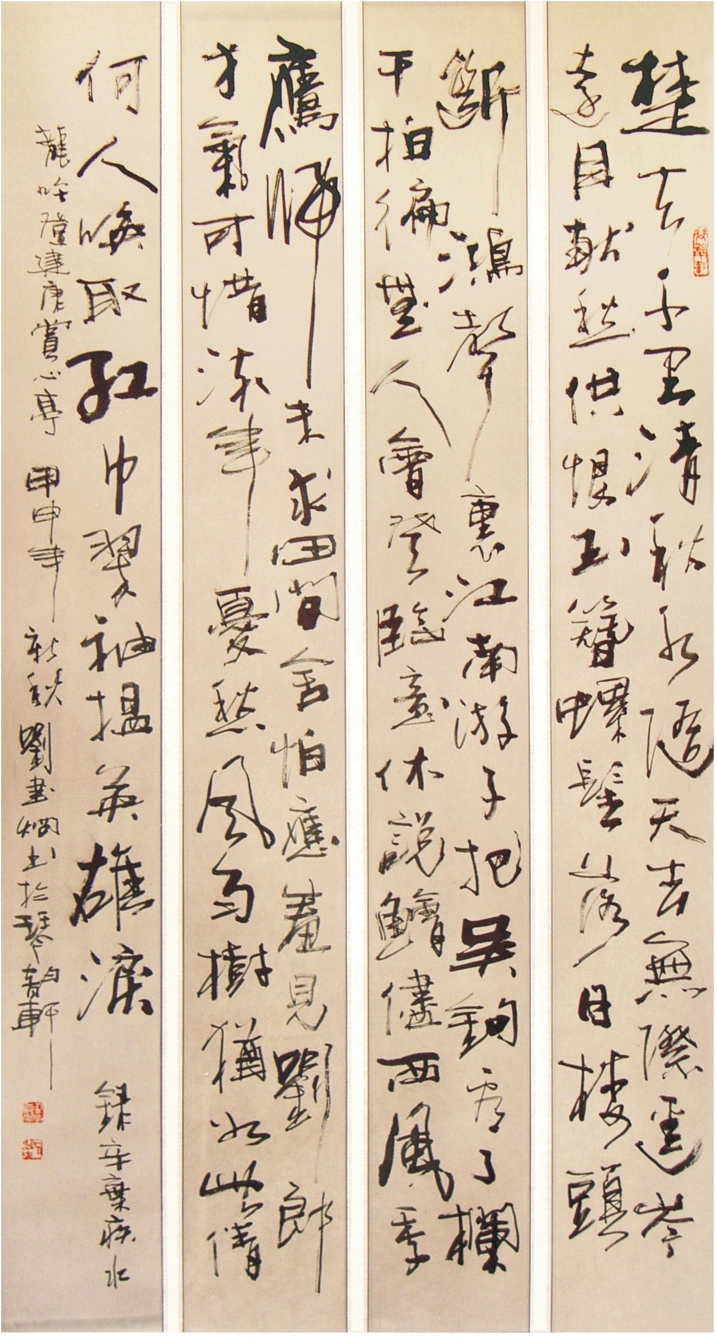 楚天千里清秋水隨天去無際遥岑
遠目獻愁供恨玉簪螺髻落日樓頭
斷鴻聲裏江南游子把吴鉤看了欄
干拍徧無人會登臨意休説鱠儘西風季
鷹歸未求田問舍怕應羞見劉郎
才氣可惜流年憂愁風雨樹猶如此倩
何人喚取紅巾翠袖揾英雄淚 錄辛棄疾水
龍吟登建康賞心亭 甲申年新秋劉書炯書於琴韵軒